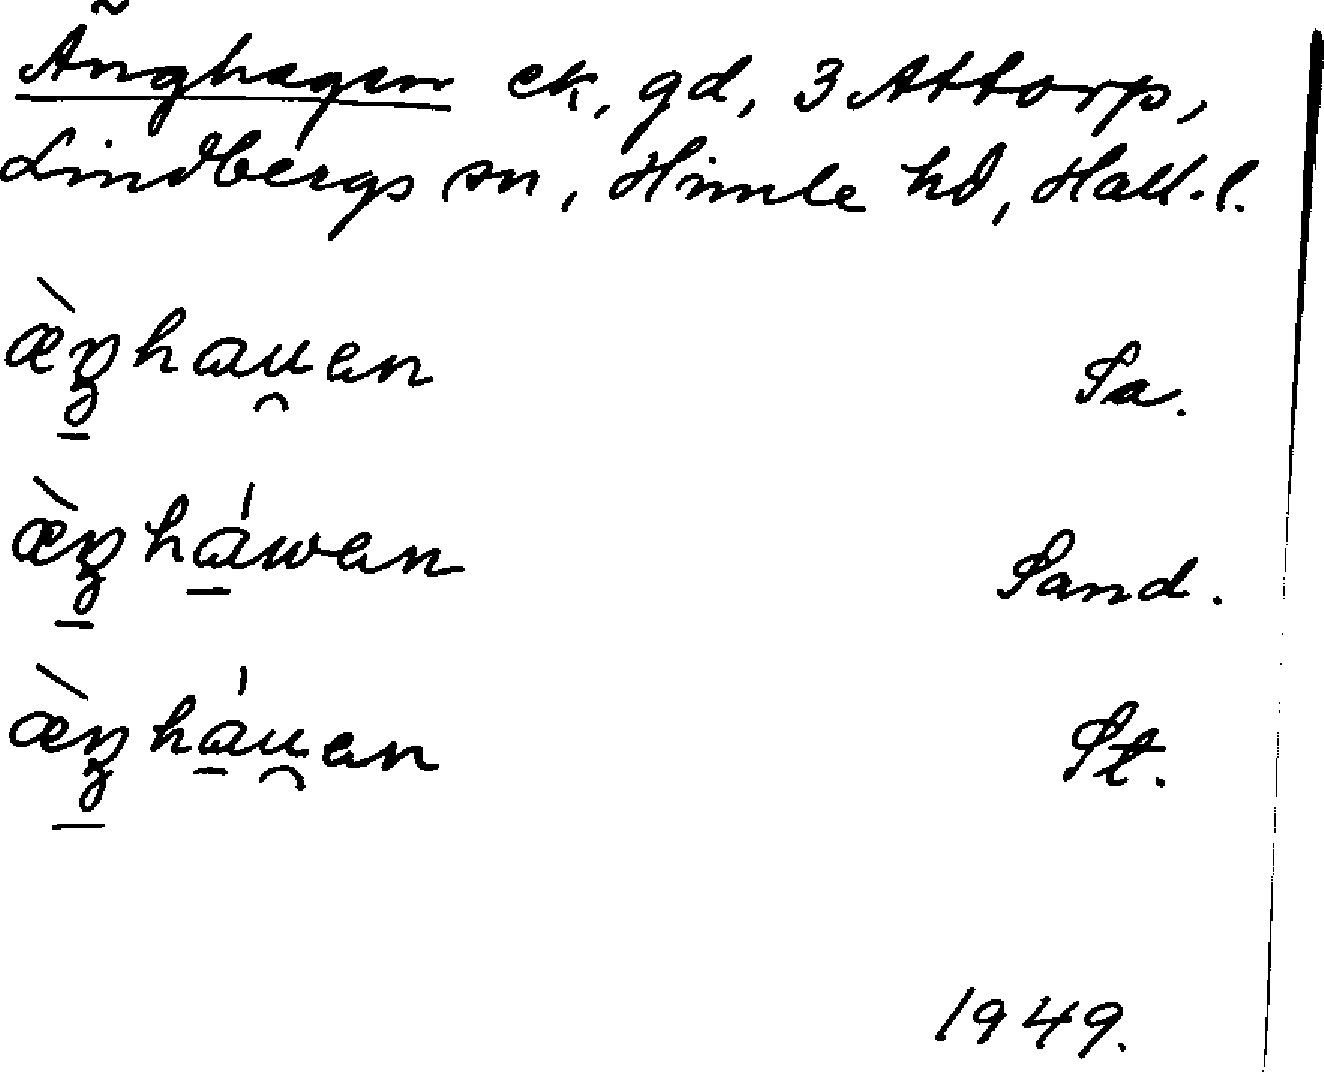 Änghagen ek, gd, 3 Attorp,
Lindbergs sn, Himle hd, Hall. l.
æ̀ŋ̲hau̯ən Sa.
æ̀ŋ̲há̲wən Sand.
æ̀ŋ̲há̲u̯ən St.
1949.